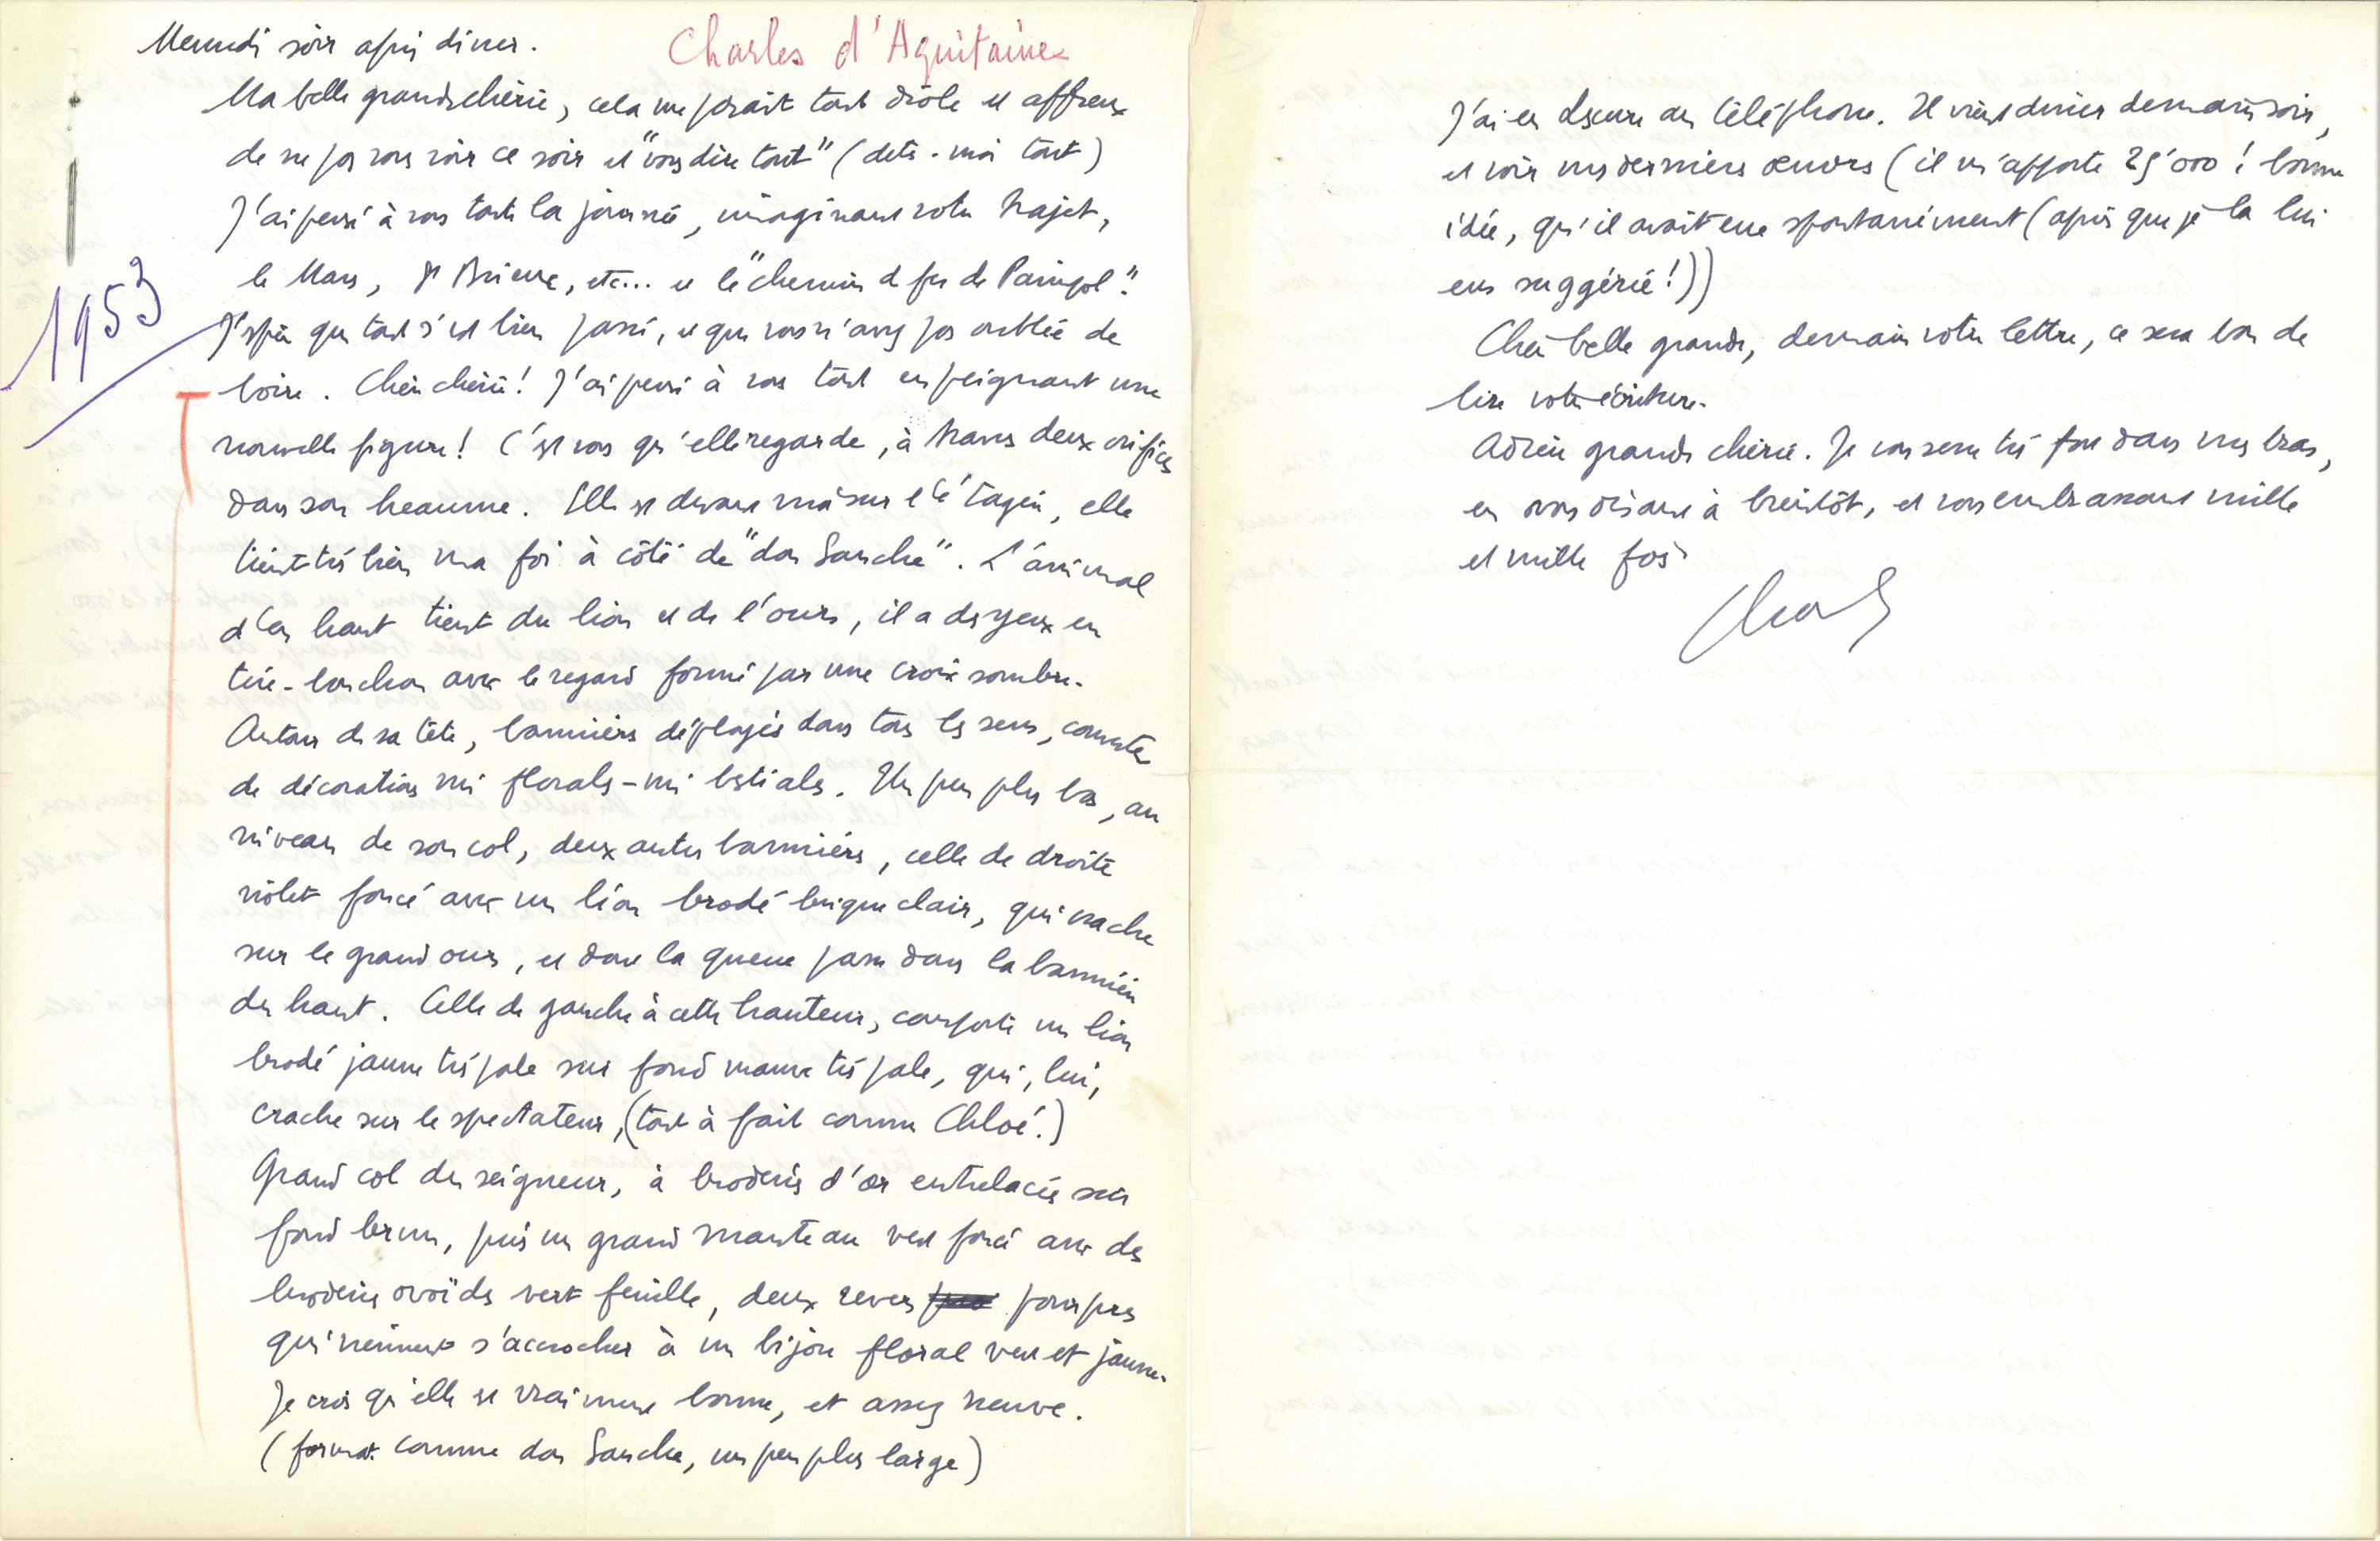 Mercredi soir après diner.
Charles d'Aquitaine
Ma belle grande chérie, cela me parait tout drôle et affreux
de ne pas vous voir ce soir et "vous dire tout" (dites-moi tout)
J'ai pensé à vous toute la journée, imaginant votre trajet,
le Mans, St Brieuc, etc... et le "chemin de fer de Paimpol".
1953
J'espère que tout s'est bien passé, et que vous n'avez pas oublié de
boire. Chère chérie! J'ai pensé à vous tout en peignant une
nouvelle figure! C'est vous qu'elle regarde, à travers deux orifices
dans son heaume. Elle est devant moi sur l'étagère, elle
tient très bien ma foi à côté de "don Sanche". L'animal
d'en haut tient du lion et de l'ours, il a des yeux en
tire-bouchon avec le regard formé par une croix sombre.
Autour de sa tête, bannières déployées dans tous les sens, couvertes
de décorations mi florales-mi bestiales. Un peu plus bas, au
niveau de son col, deux autres bannières, celle de droite
violet foncé avec un lion brodé brique clair, qui crache
sur le grand ours, et dont la queue passe dans la bannière
du haut. Celle de gauche à cette hauteur, comporte un lion
brodé jaune très pale sur fond mauve très pale, qui, lui,
crache sur le spectateur, (tout à fait comme Chloé!)
Grand col du seigneur, à broderies d'or entrelacées sur
fond brun, puis un grand manteau vert foncé avec des
broderies ovoïdes vert feuille, deux revers pourpres
qui viennent s'accrocher à un bijou floral vert et jaune.
Je crois qu'elle est vraiment bonne, et assez neuve.
(format comme don Sanche, un peu plus large)
J'ai eu au téléphone. Il vient diner demain soir,
et voir mes dernières œuvres (il m'apporte 25'000! bonne
idée, qu'il avait eue spontanément (après que je la lui
eus suggérée!))
Chère belle grande, demain votre lettre, ce sera bon de
lire votre écriture.
Adieu grande chérie. Je vous serre très fort dans mes bras,
en vous disant à bientôt, et vous embrassant mille
et mille fois